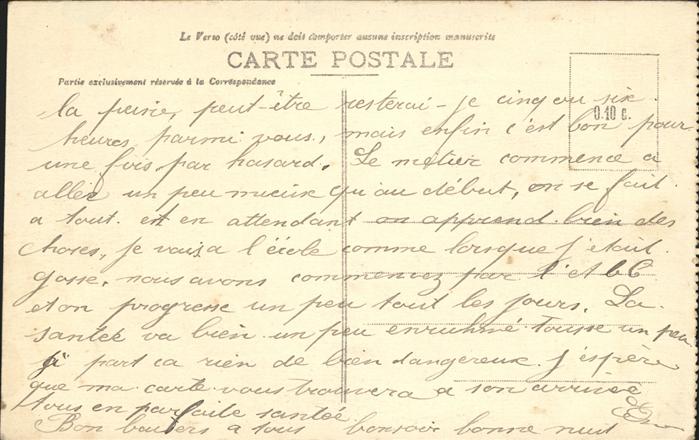 Le Verso (côté vue) ne doit comporter aucune inscription manuscrite
CARTE POSTALE
Partie exclusivement réservée à la Correspondance
0.10 c.
la peine, peut-être resterai-je cinq ou six
heures, parmi vous, mais enfin c'est bon pour
une fois par hasard. Le métier commence a
aller un peu mieux qu'au début, on se fait
a tout. et en attendant on apprend bien des
choses, je vais a l'école comme lorsque j'étais
gosse, nous avons commencez par l'A b C
et on progresse un peu tout les jours. La
santée va bien un peu enrhumé tousse un peu
à part ca rien de bien dangereux. J'espère
que ma carte vous trouvera a son arrivée
tous en parfaite santée.
Bon baisers a tous bonsoir bonne nuit